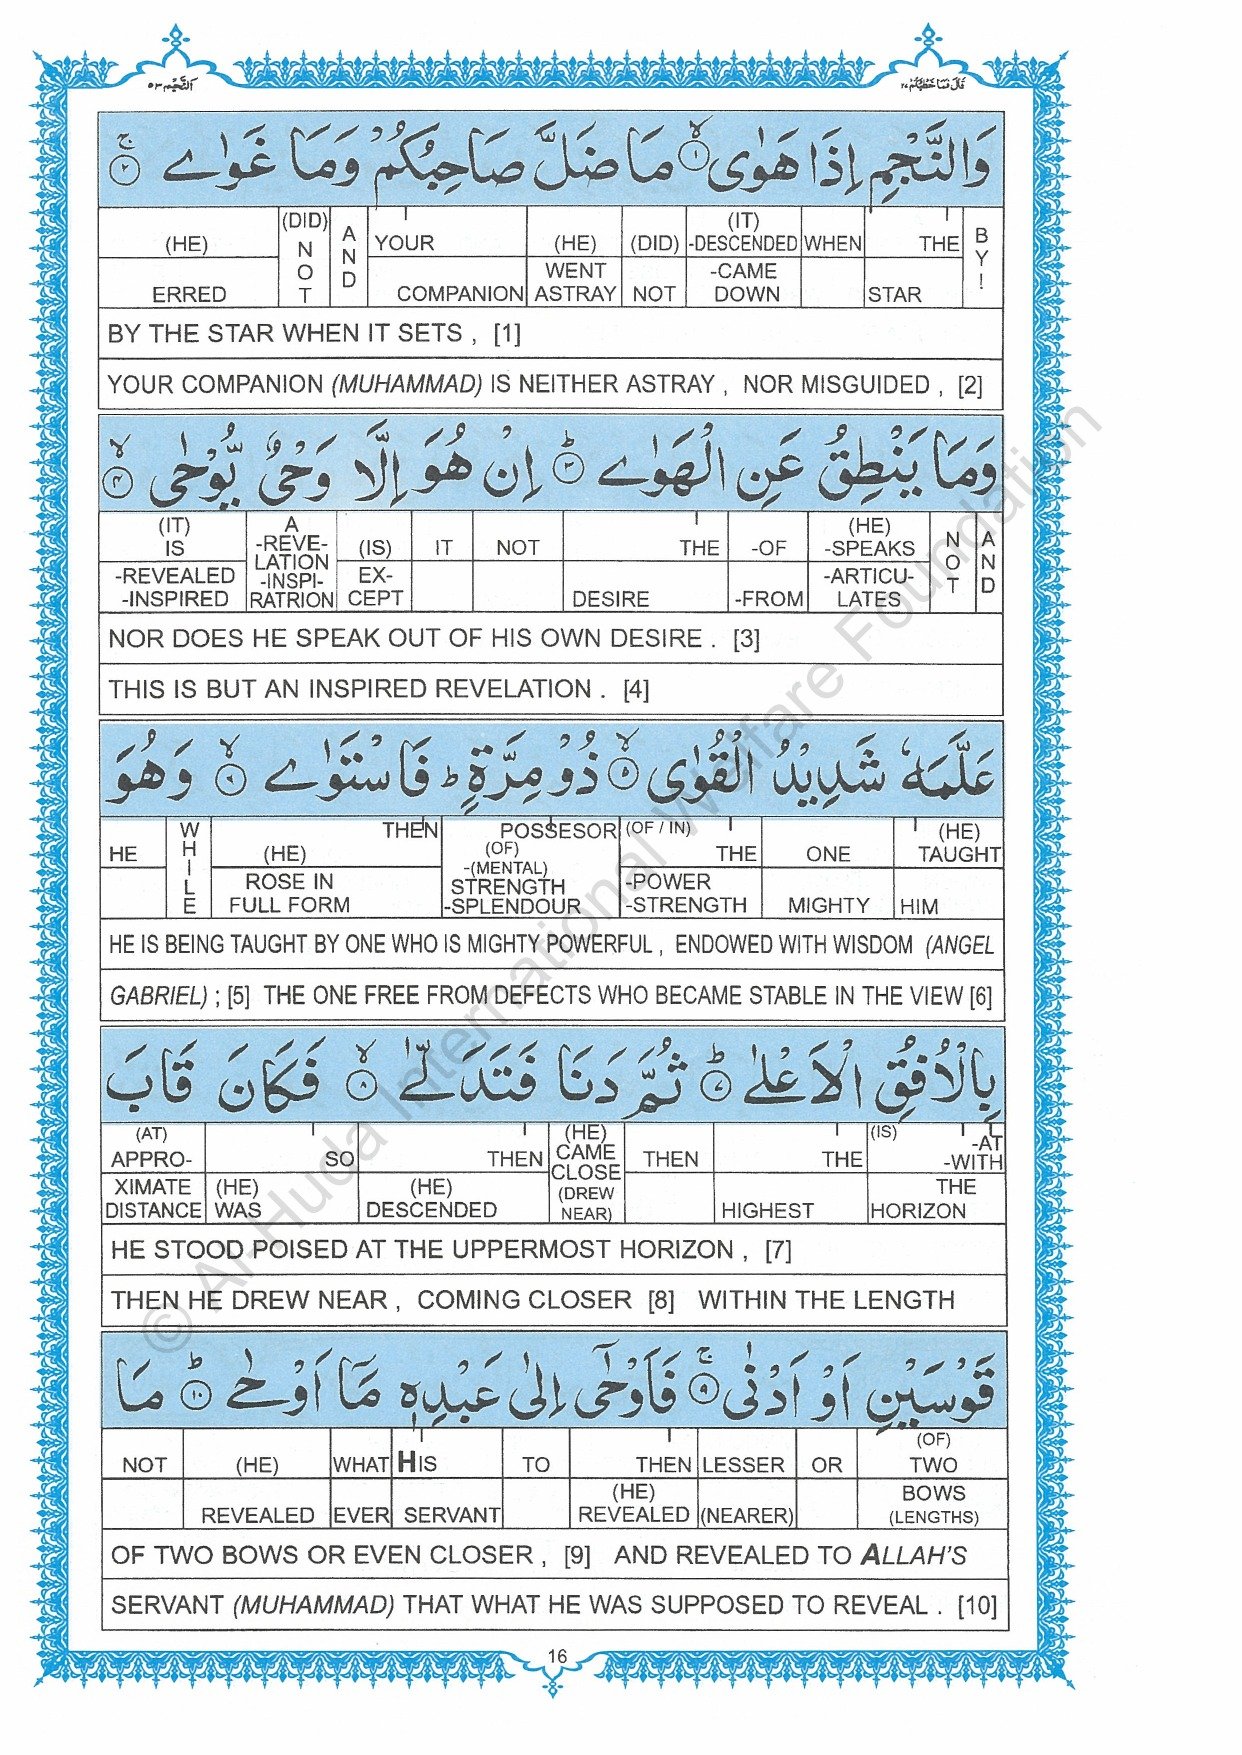 قَالَ فَمَا خَطْبُكُمْ ٢٧
اَلنَّجْمِ ٥٣
وَالنَّجْمِ اِذَا هَوٰى ۙ ١ مَا ضَلَّ صَاحِبُكُمْ وَمَا غَوٰى ۚ ٢
BY! THE STAR WHEN (IT) -DESCENDED -CAME DOWN (DID) NOT (HE) WENT ASTRAY YOUR COMPANION AND (DID) NOT (HE) ERRED
BY THE STAR WHEN IT SETS , [1]
YOUR COMPANION (MUHAMMAD) IS NEITHER ASTRAY , NOR MISGUIDED , [2]
وَمَا يَنْطِقُ عَنِ الْهَوٰى ؕ ٣ اِنْ هُوَ اِلَّا وَحْىٌ يُّوْحٰى ۙ ٤
AND NOT (HE) -SPEAKS -ARTICU-LATES -OF -FROM THE DESIRE NOT IT (IS) EX-CEPT A -REVE-LATION -INSPI-RATRION (IT) IS -REVEALED -INSPIRED
NOR DOES HE SPEAK OUT OF HIS OWN DESIRE . [3]
THIS IS BUT AN INSPIRED REVELATION . [4]
عَلَّمَهٗ شَدِيْدُ الْقُوٰى ۙ ٥ ذُوْ مِرَّةٍ ؕ فَاسْتَوٰى ۙ ٦ وَهُوَ
(HE) TAUGHT HIM ONE MIGHTY (OF / IN) THE -POWER -STRENGTH POSSESOR (OF) -(MENTAL) STRENGTH -SPLENDOUR THEN (HE) ROSE IN FULL FORM WHILE HE
HE IS BEING TAUGHT BY ONE WHO IS MIGHTY POWERFUL , ENDOWED WITH WISDOM (ANGEL
GABRIEL) ; [5] THE ONE FREE FROM DEFECTS WHO BECAME STABLE IN THE VIEW [6]
بِالْاُفُقِ الْاَعْلٰى ؕ ٧ ثُمَّ دَنَا فَتَدَلّٰى ۙ ٨ فَكَانَ قَابَ
(IS) -AT -WITH THE HORIZON THE HIGHEST THEN (HE) CAME CLOSE (DREW NEAR) THEN (HE) DESCENDED SO (HE) WAS (AT) APPRO-XIMATE DISTANCE
HE STOOD POISED AT THE UPPERMOST HORIZON , [7]
THEN HE DREW NEAR , COMING CLOSER [8] WITHIN THE LENGTH
قَوْسَيْنِ اَوْ اَدْنٰى ۚ ٩ فَاَوْحٰٓى اِلٰى عَبْدِهٖ مَآ اَوْحٰى ؕ ١٠ مَا
(OF) TWO BOWS (LENGTHS) OR LESSER (NEARER) THEN (HE) REVEALED TO HIS SERVANT WHAT EVER (HE) REVEALED NOT
OF TWO BOWS OR EVEN CLOSER , [9] AND REVEALED TO ALLAH'S
SERVANT (MUHAMMAD) THAT WHAT HE WAS SUPPOSED TO REVEAL . [10]
16
© Al-Huda International Welfare Foundation